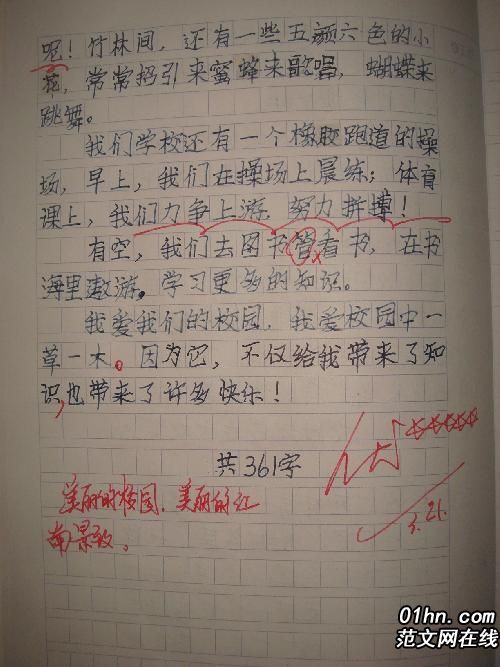 呢！竹林间，还有一些五颜六色的小
花，常常招引来蜜蜂来歌唱，蝴蝶来
跳舞。
我们学校还有一个橡胶跑道的操
场，早上，我们在操场上晨练；体育
课上，我们力争上游，努力拼搏！
有空，我们去图书管看书，在书
海里遨游。学习更多的知识。
我爱我们的校园，我爱校园中一
草一木。因为它，不仅给我带来了知
识，也带来了许多快乐！
共361字
优
美丽的校园，美丽的红
南景致。
01hn.com
范文网在线